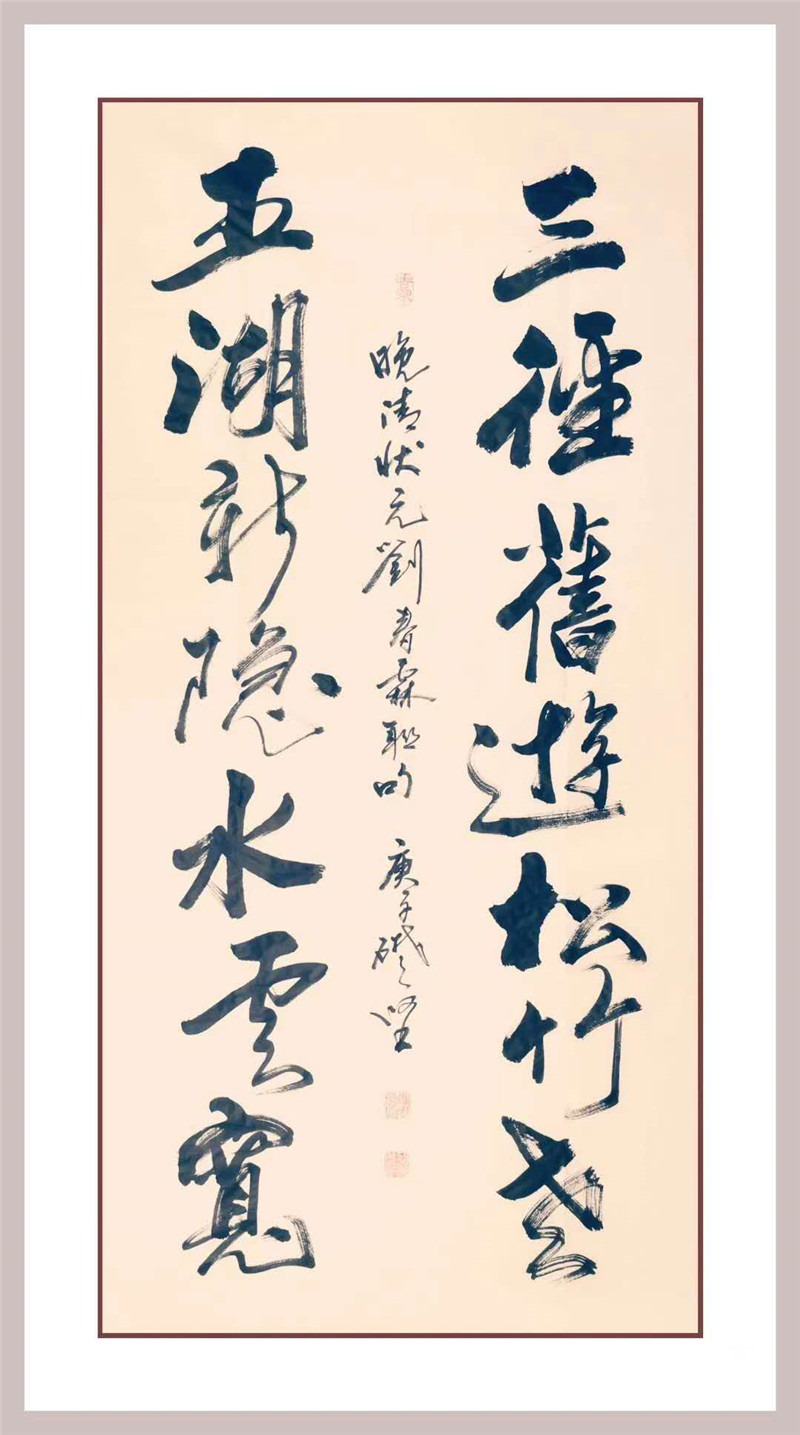 三徑舊遊松竹老
晚清状元劉春霖聯句 庚子
五湖新隐水雲寬